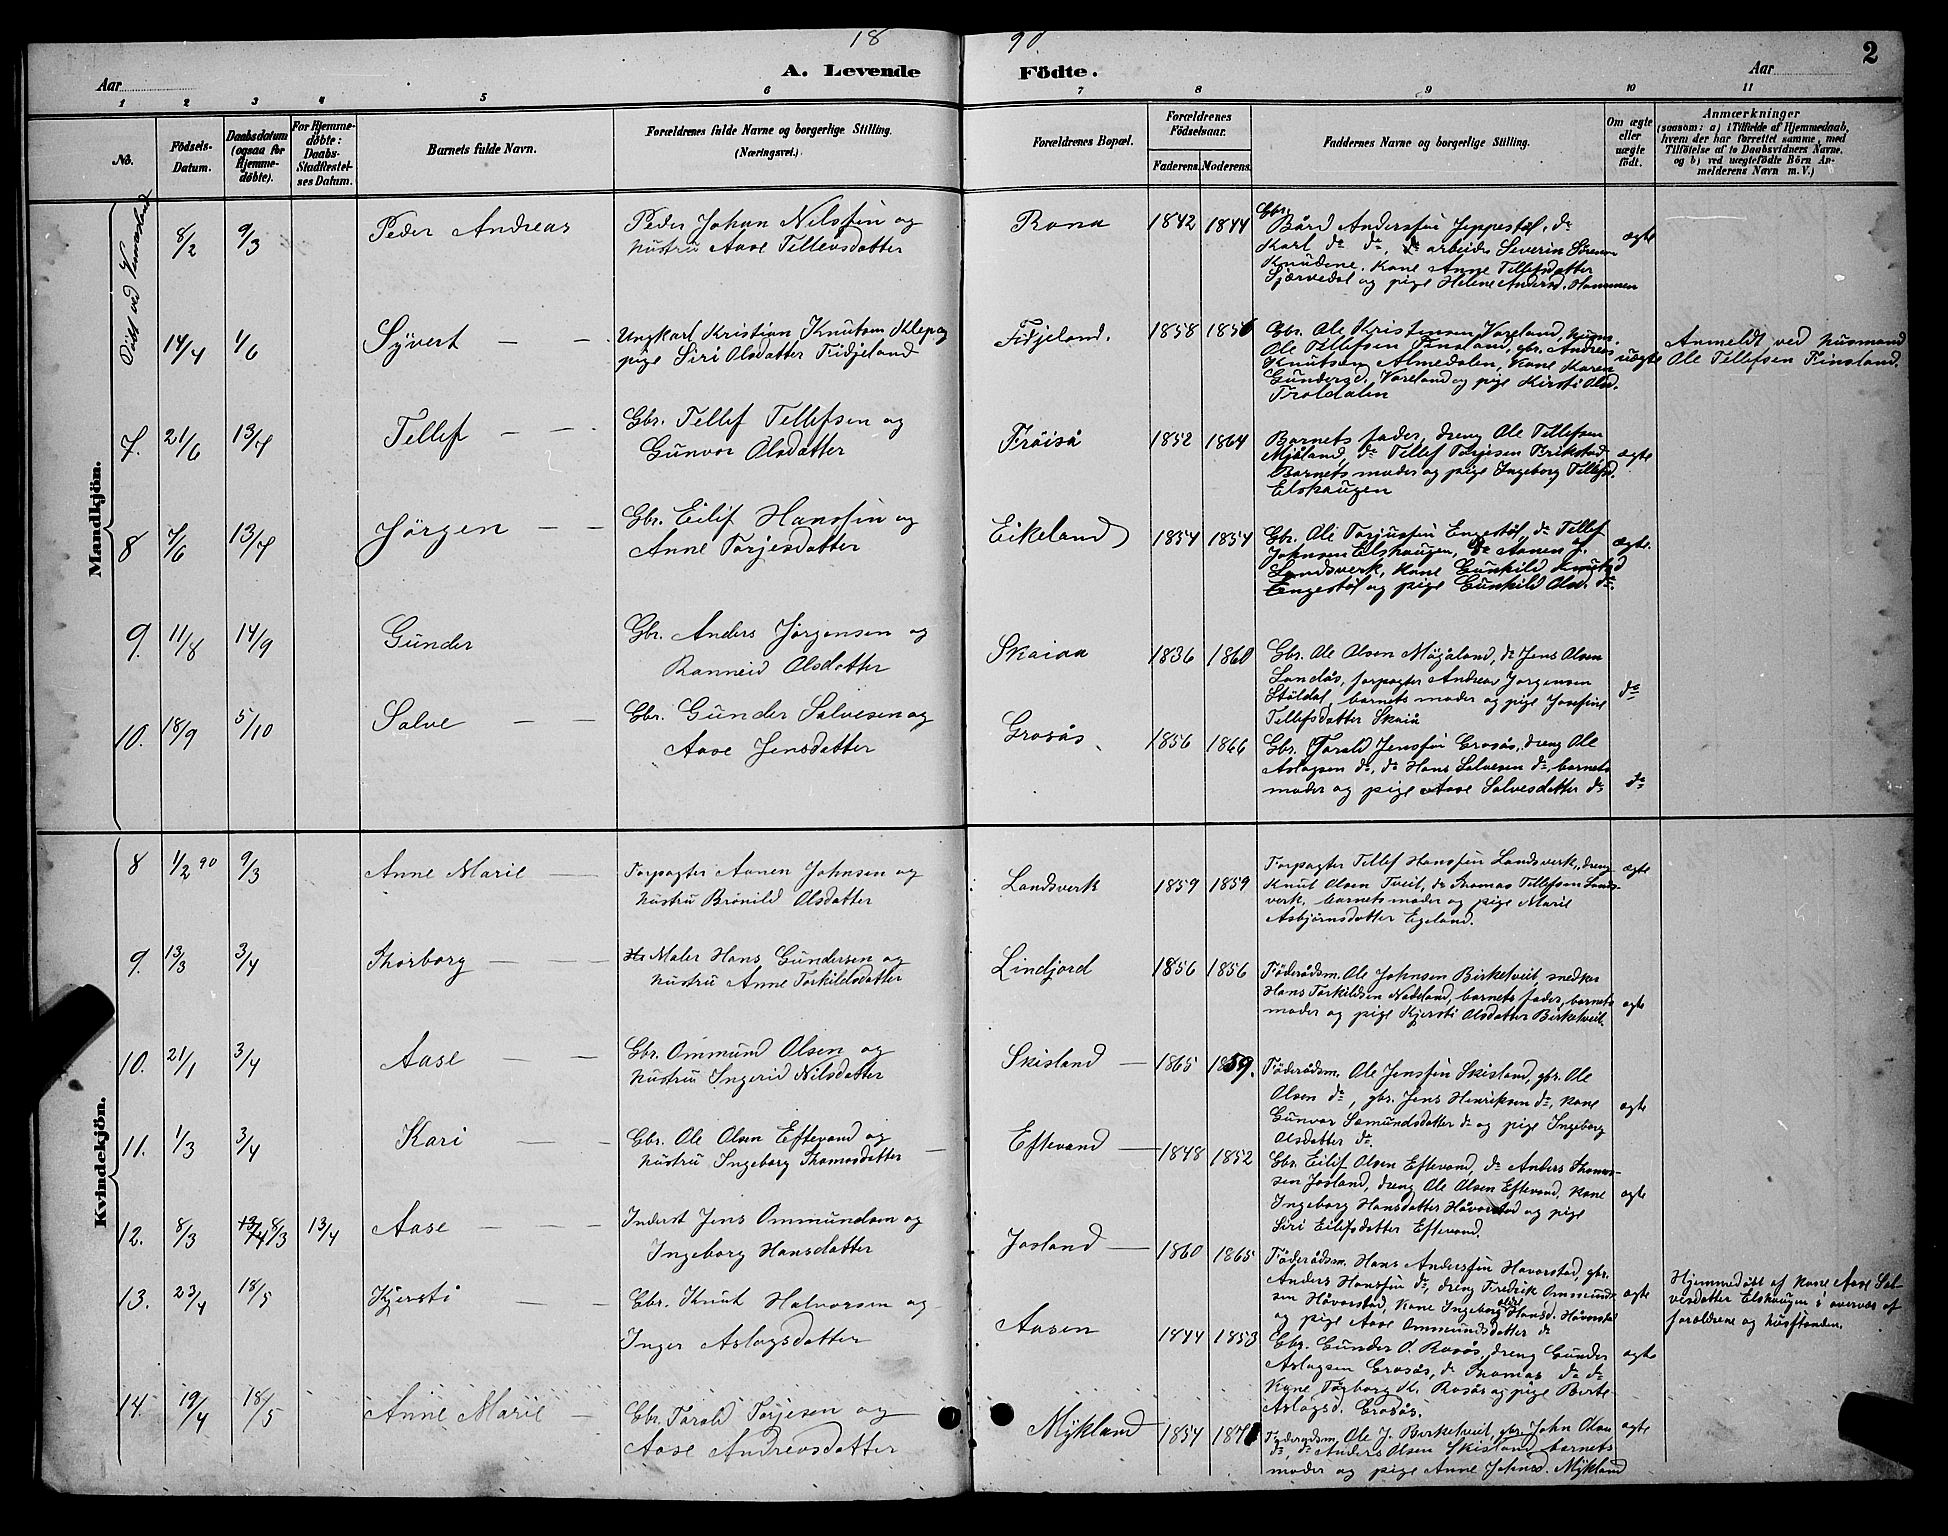 18 90.
2
A. Levende Födte.
Aar
Aar
1 2 3 4 5 6 7 8 9 10 11
No.
Födsels-Datum.
Daabsdatum (ogsaa for Hjemme-døbte).
For Hjemme-døbte: Daabs-Stadfæstel-ses Datum.
Barnets fulde Navn.
Forældrenes fulde Navne og borgerlige Stilling.
(Næringsvei.)
Forældrenes Bopæl.
Forældrenes Födselsaar.
Faderens. Moderens.
Faddernes Navne og borgerlige Stilling.
Om ægte eller uægte födt.
Anmærkninger
(saasom: a) i Tilfælde af Hjemmedaab,
hvem der har forrettet samme, med
Tilföielse af to Daabsvidners Navne.
og b) ved uegtefödte Börn An-
melderens Navn m. V.)
Mandkjön.
Döbt ved
8/2 9/3 Peder Andreas
Peder Johan Nilssen og
hustru Aase Tellevsdatter
Rona 1842 1844
Gbr. Bård Anderssen Jeppestöl, do
Karl do do, do arbeider Severin Sörensen
Knudene. Kone Anne Tellefsdatter
og pige Helene Andersd. Hommen
ægte
14/4 1/6 Syvert
Ungkarl Kristian Knutsen Klep og
pige Siri Olsdatter Fidjeland
Fidjeland. 1858 1856
Gbr. Ole Kristensen Vareland, husm.
Ole Tellefsen Finsland, gbr. Andreas
Knutsen Almedalen, Kone Karen
Gundersd. Vareland og pige Kirsti Olsd.
Troldalen
uægte
Anmeldt ved husmand
Ole Tellefsen Finsland.
7. 21/6 13/7 Tellef
Gbr. Tellef Tellefsen og
Gunvor Olsdatter
Fröiså 1852 1864
Barnets fader, dreng Ole Tellefsen
Mjåland, do Tellef Torjesen Brikstad
Barnets moder og pige Ingeborg Tellefsd.
Elshaugen
ægte
8 7/6 13/7 Jörgen
Gbr. Eilif Hanssen og
Anne Torjesdatter
Eikeland 1854 1854
Gbr. Ole Torjussen Engestöl, do Tellef
Johnsen Elshaugen, do Aanen J.
Landsverk, Kone Gunhild Knutsd
Engestöl og pige Gunhild Olsd. do
ægte.
9. 11/8 14/9 Gunder
Gbr. Anders Jörgensen og
Ranneid Olsdatter
Skaiaa 1836 1860
Gbr. Ole Olsen Mögåland, do Jens Olsen
Landås, forpagter Andreas Jörgensen
Stöldal, barnets moder og pige Josefine
Tellefsdatter Skaiå
do
10. 18/9 5/10 Salve
Gbr. Gunder Salvesen og
Aase Jensdatter
Grosås 1856 1866
Gbr. Torald Jenssen Grosås, dreng Ole
Aslagsen do, do Hans Salvesen do, barnets
moder og pige Aase Salvesdatter do
do
Kvindekjön.
8 1/2 90 9/3 Anne Marie
Forpagter Aanen Johnsen og
hustru Brönild Olsdatter
Landsverk 1859 1859
Forpagter Tellef Hanssen Landsverk, dreng
Knut Olsen Tveit, do Thomas Tellefsen Lands-
verk, barnets moder og pige Marie
Asbjörnsdatter Egeland.
ægte
9. 13/3 3/4 Thorborg
Maler Hans Gundersen og
hustru Anne Torkildsdatter
Lindjord 1856 1856
Föderådsm. Ole Johnsen Birketveit, snedker
Hans Torkildsen Nedeland, barnets fader, barnets
moder og pige Kjersti Olsdatter Birketveit.
ægte
10. 21/1 3/4 Aase
Gbr. Ommund Olsen og
hustru Ingerid Nilsdatter
Skisland 1865 1859.
Föderådsm. Ole Jenssen Skisland, gbr. Ole
Olsen do, gbr. Jens Henriksen do, kone
Gunvor Samundsdatter do og pige Ingeborg
Olsdatter do.
ægte
11. 1/3 3/4 Kari
Gbr. Ole Olsen Eftevand og
hustru Ingeborg Thomasdatter
Eftevand 1848 1852
Gbr. Eilif Olsen Eftevand, do Anders Thomas-
sen Josland, dreng Ole Olsen Eftevand, Kone
Ingeborg Hansdatter Håvorstad og pige
Siri Eilifsdatter Eftevand.
ægte
12. 8/3 13/4 8/3 13/4 Aase
Inderst Jens Ommundsen og
Ingeborg Hansdatter
Josland 1860 1865
Föderådsm. Hans Anderssen Håvorstad, gbr.
Anders Hanssen do, dreng Fredrik Ommund-
sen Håvorstad, Kone Ingeborg Hansd. Håvorstad
og pige Aase Ommundsdatter do
ægte
Hjemmedöbt af kone Aase Sal-
vesdatter Elshaugen i overvær af
forældrene og husstanden.
13. 23/4 18/5 Kjersti
Gbr. Knut Halvorsen og
Inger Aslagsdatter
Aasen 1844 1853
Gbr. Gunder O. Rosås, dreng Gunder
Aslagsen Grosås, do Thomas do do
Kone Tögborg K. Rosås og pige Berte
Aslagsd. Grosås.
ægte
14. 19/4 18/5 Anne Marie
Gbr. Torald Torjesen og
Aase Andreasdatter
Mykland 1854 1871
Föderådsm. Ole J. Birketveit, gbr. John Olsen
do, do Anders Olsen Skisland, barnets
moder og pige Anne Johnsd. Mykland
ægte